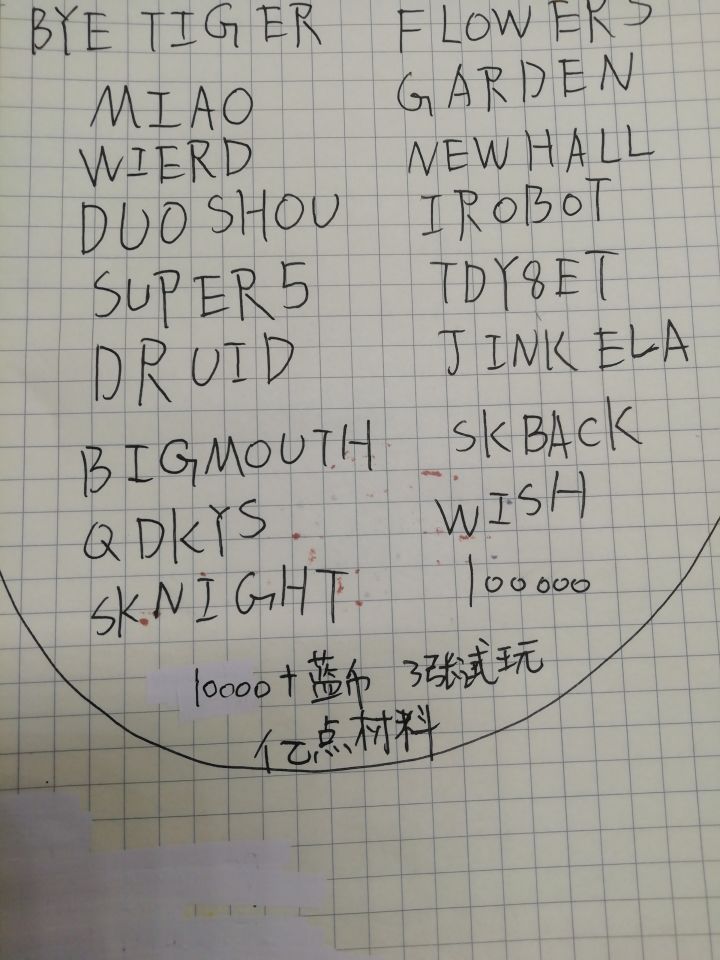 BYE TIGER
MIAO
WIERD
DUOSHOU
SUPER5
DRUID
BIGMOUTH
QDKYS
SKNIGHT
FLOWERS
GARDEN
NEWHALL
IROBOT
TDY8ET
JINKELA
SKBACK
WISH
100000
10000+蓝币 3张试玩
亿点材料